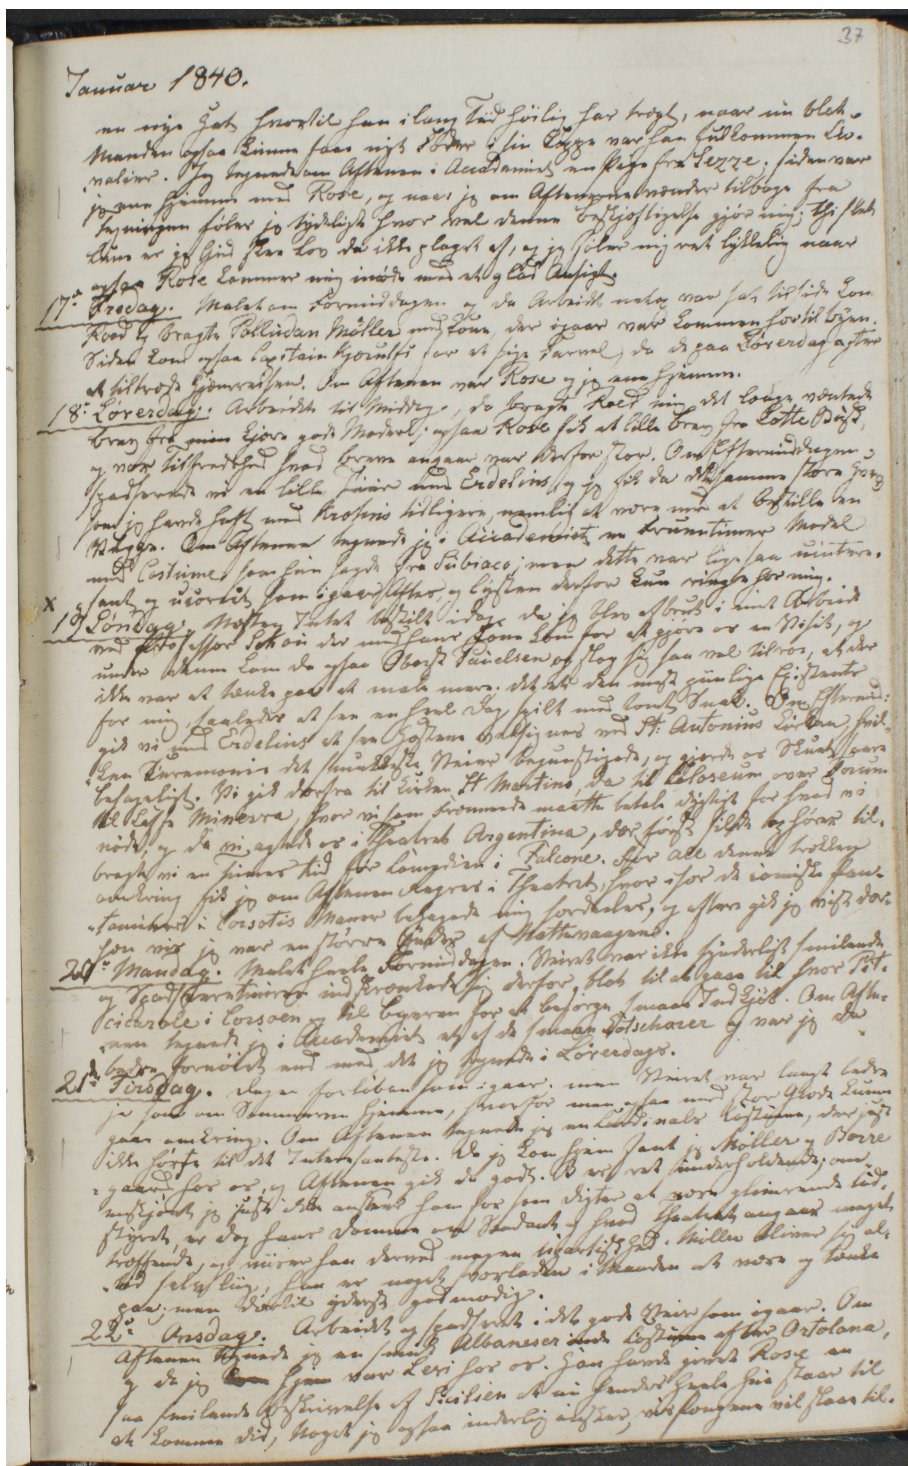 37
Januar 1840.
en nye Hat hvortil han i lang Tid høilig har trægt, naar nu blot
Manden ogsaa kunne faae nyt Foder i sin Kappe var han fuldkommen Ca-
valier. Jeg tegnede om Aftenen i Academiet en Pige fra Sezze. siden var
jeg ene hjemme med Rose, og naar jeg om Aftenerne vender tilbage fra
Tegningen føler jeg tydeligst hvor vel denne Beskjæftigelse gjør mig; thi
er jeg Gud skee Lov da ikke plaget af, og jeg føler mig ret lykkelig naar
ogsaa Rose kommer mig imøde med et glad Ansigt.
17de Fredag. Malet om Formiddagen og da Arbeidet var sat til side kom
Roed og bragte Palludan Müller med Kone, der igaar var kommen her til Byen.
Siden kom ogsaa Capitain Kjærulff for at sige Farvel, da de paa Løverdag agter
at tiltræde Hjemreisen. Om Aftenen var Rose og jeg ene hjemme.
18de Løverdag. Arbeidet til Middag, da bragte Roed mig det længe ventede
brev fra min kjære gode Moder; ogsaa Rose fik et lille brev fra Lotte
og vor Tilfredshed hvad breve angaar var derfor stor. Om Eftermiddagen
spadserede vi en lille Tuur med Erdelius, og jeg fik da det samme store
som jeg havde haft med Krohns tidligere, nemlig at være med at bestille en
Vugge. Om Aftenen tegnede jeg i Accademiet en Fruentimer Model
med Costume, som hun sagde fra Subiaco; men dette var ligesaa uinteres-
sant og ucorect som igaar Aftes, og lysten derfor kun ringe hos mig.
x
19 Søndag. Næsten Intet bestilt idag, da jeg blev afbrudt i mit Arbeide
ved Professor Schou der med hans Kone kom for at gjøre os en Visit, og
under denne kom da ogsaa Oberst Paulsen og slog sig saa vel tilroe, at der
ikke var at tænke paa at male mere. det er den meest piinlige Existents
for mig, saaledes at see en heel Dag spilt med tomt Snak. Om Eftermid:
gik vi med Erdelius at see Hestene velsignes ved St: Antonius Kirken, hvil-
ken Ceremonie det smukkeste Veier begunstigede, og gjorde os Skuet
behageligt. Vi gik derfra til Kirken St Martino, da til Coloseum over Forum
til Caffe Minerva, hvor vi som Fremmede maatte betale dygtigt for hvad vi
nøde, og da vi agtede os i Theatret Argentina, der først silde begynder til-
bragte vi en Times tid før Comedien i Falcone. For all denne trekken
omkring fik jeg om Aftenen i Theatret, hvor ifør de comiske Pan-
tomimer i Corsetis Maneer behagede mig fordeeles, og efterer gik jeg vist der-
hen vis jeg var en større Ynder af Nattevaagen.
20de Mandag. Malet heele Formiddagen. Veiret var ikke synderligt smilende
og Spadsereturene indskrænkede sig derfor, blot til at gaae til hvor Piz-
cicarole i Corsoen og til byeren for at besørge smaae Indkjøb. Om Afte-
nen tegnede jeg i Accademiet et af de smaae og var jeg da
bedre fornøiet end med det jeg tegnede i Løverdags.
21de Tirsdag. Dagen forløben som igaar. men Veiret var langt bedre
ja som om Sommeren hjemme, hvorfor man ogsaa med stor Glæde kunne
gaae omkring. Om Aftenen tegnede jeg en Cardinals Costume, der just
ikke hører til det Interesanteste. Da jeg kom hjem fandt jeg Møller og Borre
gaard hos os, og Aftenen gik da godt. B er ret underholdende; om-
endskjøndt jeg just ikke anseer ham for som Digter at være glimrende tid-
styret, er dog hans Domme om Snedant og hvad Theatret angaar meget
træffende, og viiser han derved megen Upartiskhed. Müller bliver sig al-
tid selvliig, han er noget forladen i Maaden at være og tænke
paa; men dertil yderst godmodig.
22de Onsdag. Arbeidet og spadseret i det gode Veir som igaar. Om
Aftenen tegnede jeg en smuk Albaneser costume efter Ortolana,
og da jeg kom hjem var Levi hos os. Han havde gjort Rose en
saa smilende beskrivelse af Sicilien at nu hendes heele Hu staar til
at komme did, Noget jeg ogsaa inderlig ønsker, vis pengene vil slaae til.